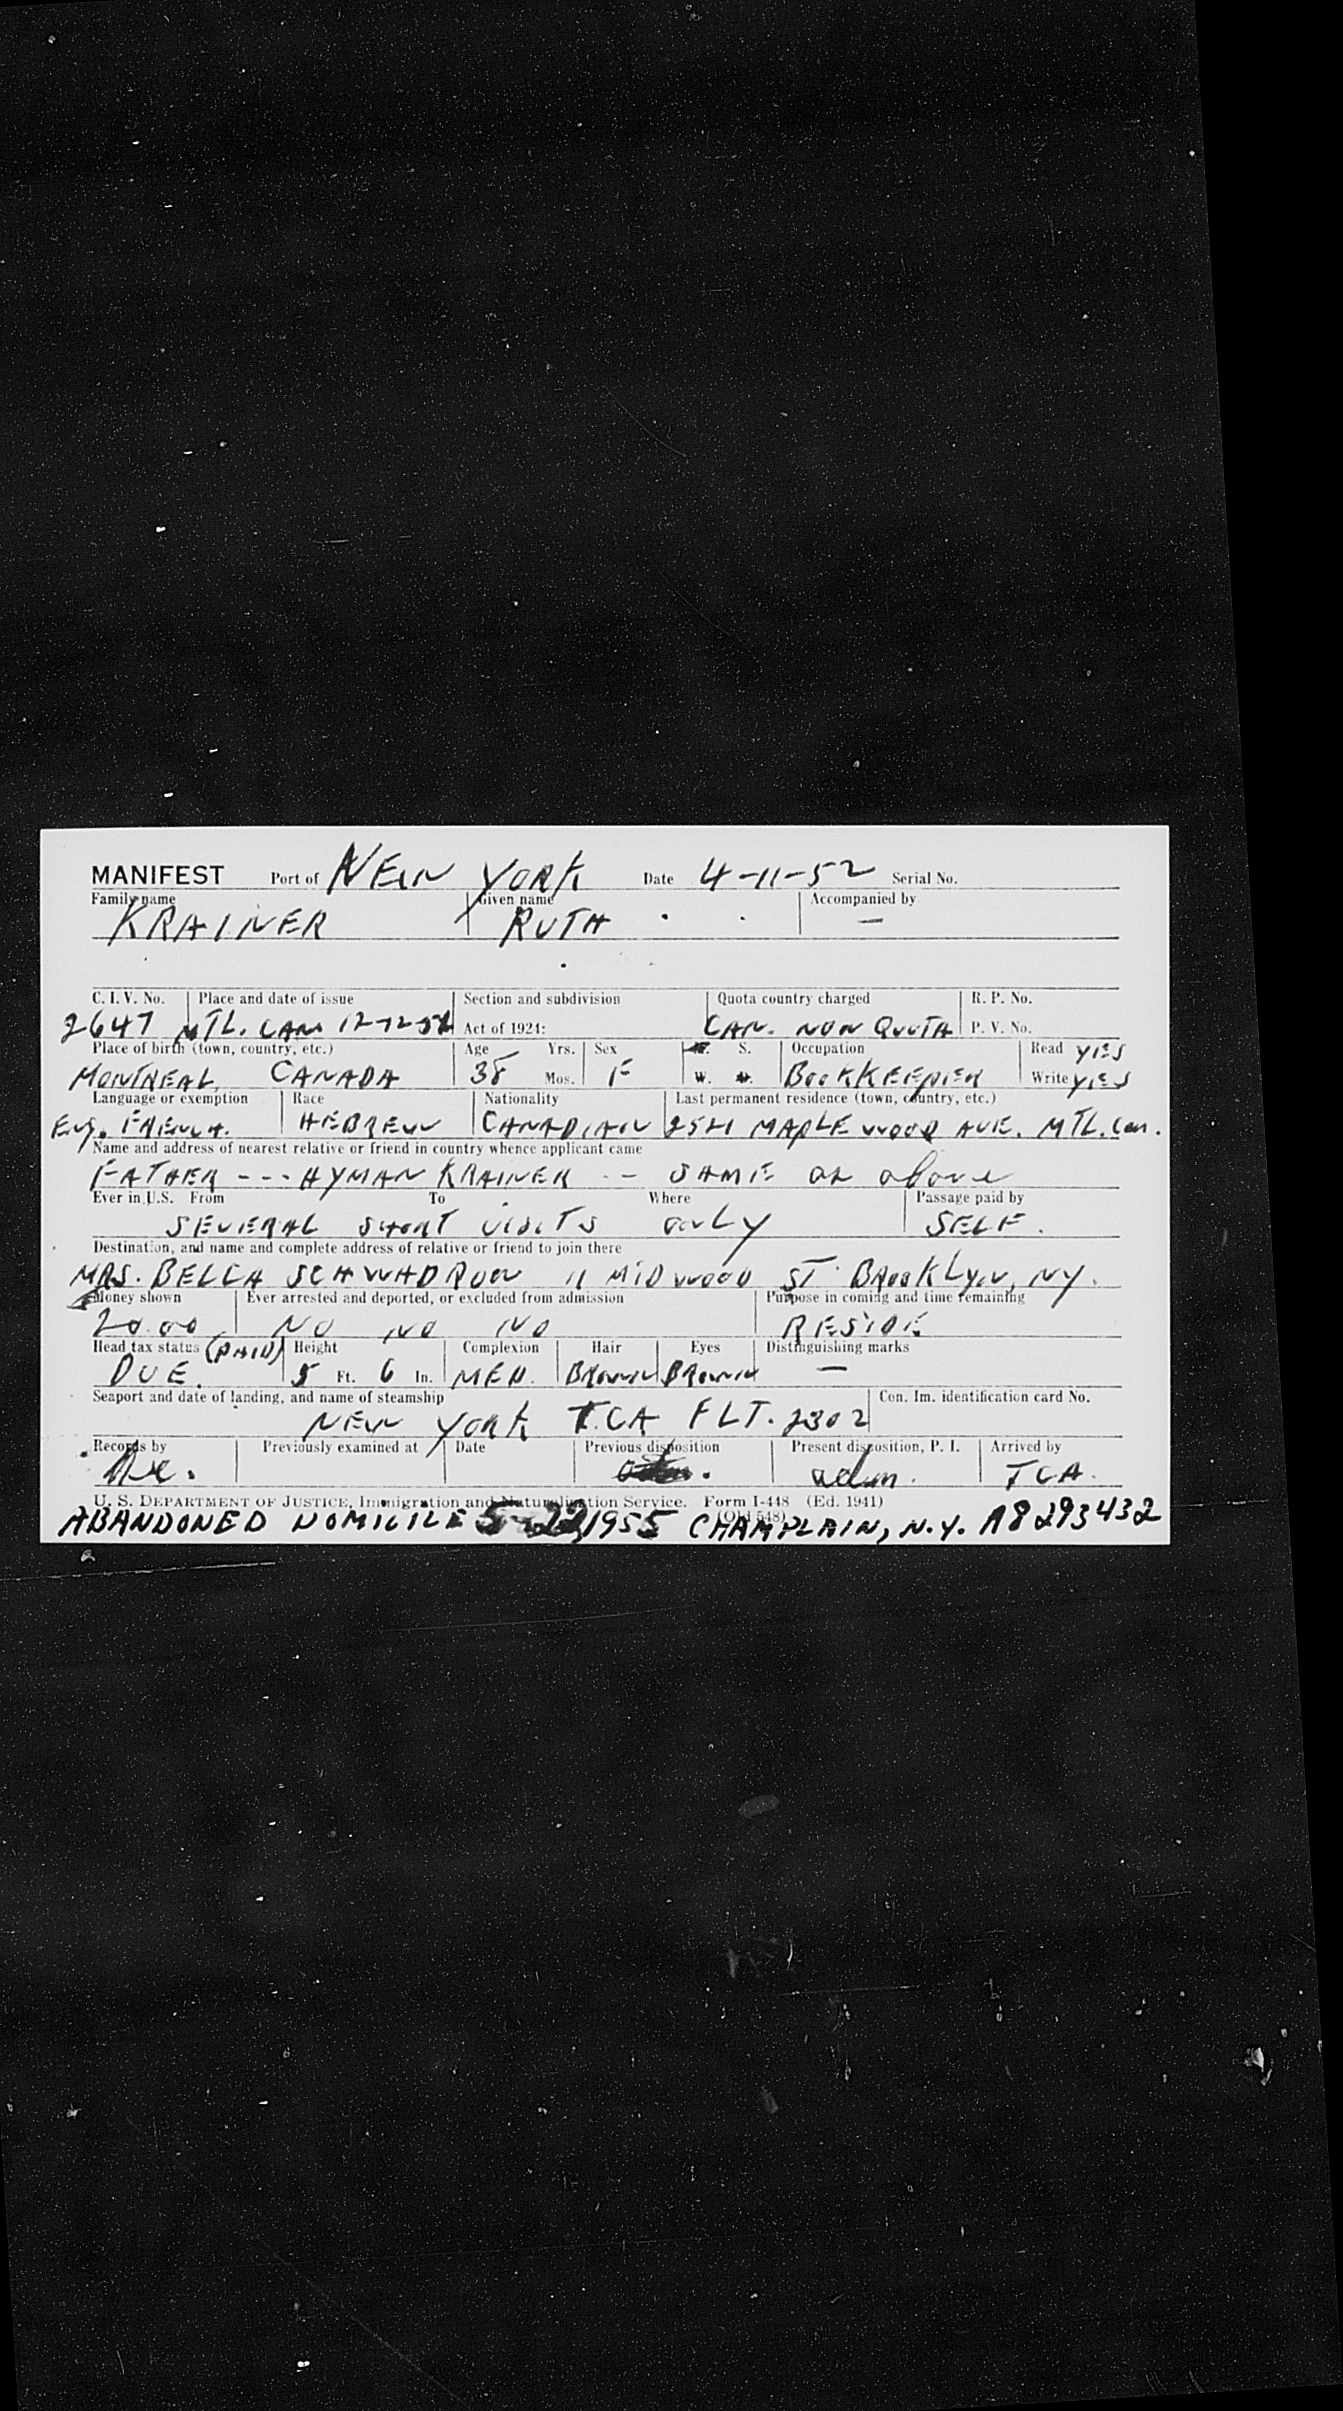 MANIFEST Port of NEW YORK Date 4-11-52 Serial No.
Family name Given name Accompanied by
KRAINER RUTH —
C. I. V. No. Place and date of issue Section and subdivision Quota country charged R. P. No.
2647 MTL. CAN. 12-12-51 Act of 1924: CAN. NON QUOTA P. V. No.
Place of birth (town, country, etc.) Age Yrs. Sex S. Occupation Read YES
MONTREAL, CANADA 38 Mos. F W. BOOKKEEPER Write YES
Language or exemption Race Nationality Last permanent residence (town, country, etc.)
Eng. FRENCH. HEBREW CANADIAN MAPLE WOOD AVE. MTL. Can.
Name and address of nearest relative or friend in country whence applicant came
FATHER --- HYMAN KRAINER -- SAME as above
Ever in U.S. From To Where Passage paid by
SEVERAL SHORT VISITS only SELF.
Destination, and name and complete address of relative or friend to join there
MRS. BELLA SCHWADRON 11 MIDWOOD ST. BROOKLYN, NY.
Money shown Ever arrested and deported, or excluded from admission Purpose in coming and time remaining
20.00 NO NO NO RESIDE
Head tax status (PAID) Height Complexion Hair Eyes Distinguishing marks
DUE. 5 Ft. 6 In. MED. Brown Brown —
Seaport and date of landing, and name of steamship Con. Im. identification card No.
NEW YORK TCA FLT. 2302
Records by Previously examined at Date Previous disposition Present disposition, P. I. Arrived by
adm. TCA.
U. S. DEPARTMENT OF JUSTICE, Immigration and Naturalization Service. Form I-448 (Ed. 1941)
(Old 548)
ABANDONED DOMICILE 5-22,1955 CHAMPLAIN, N.Y. A8293432